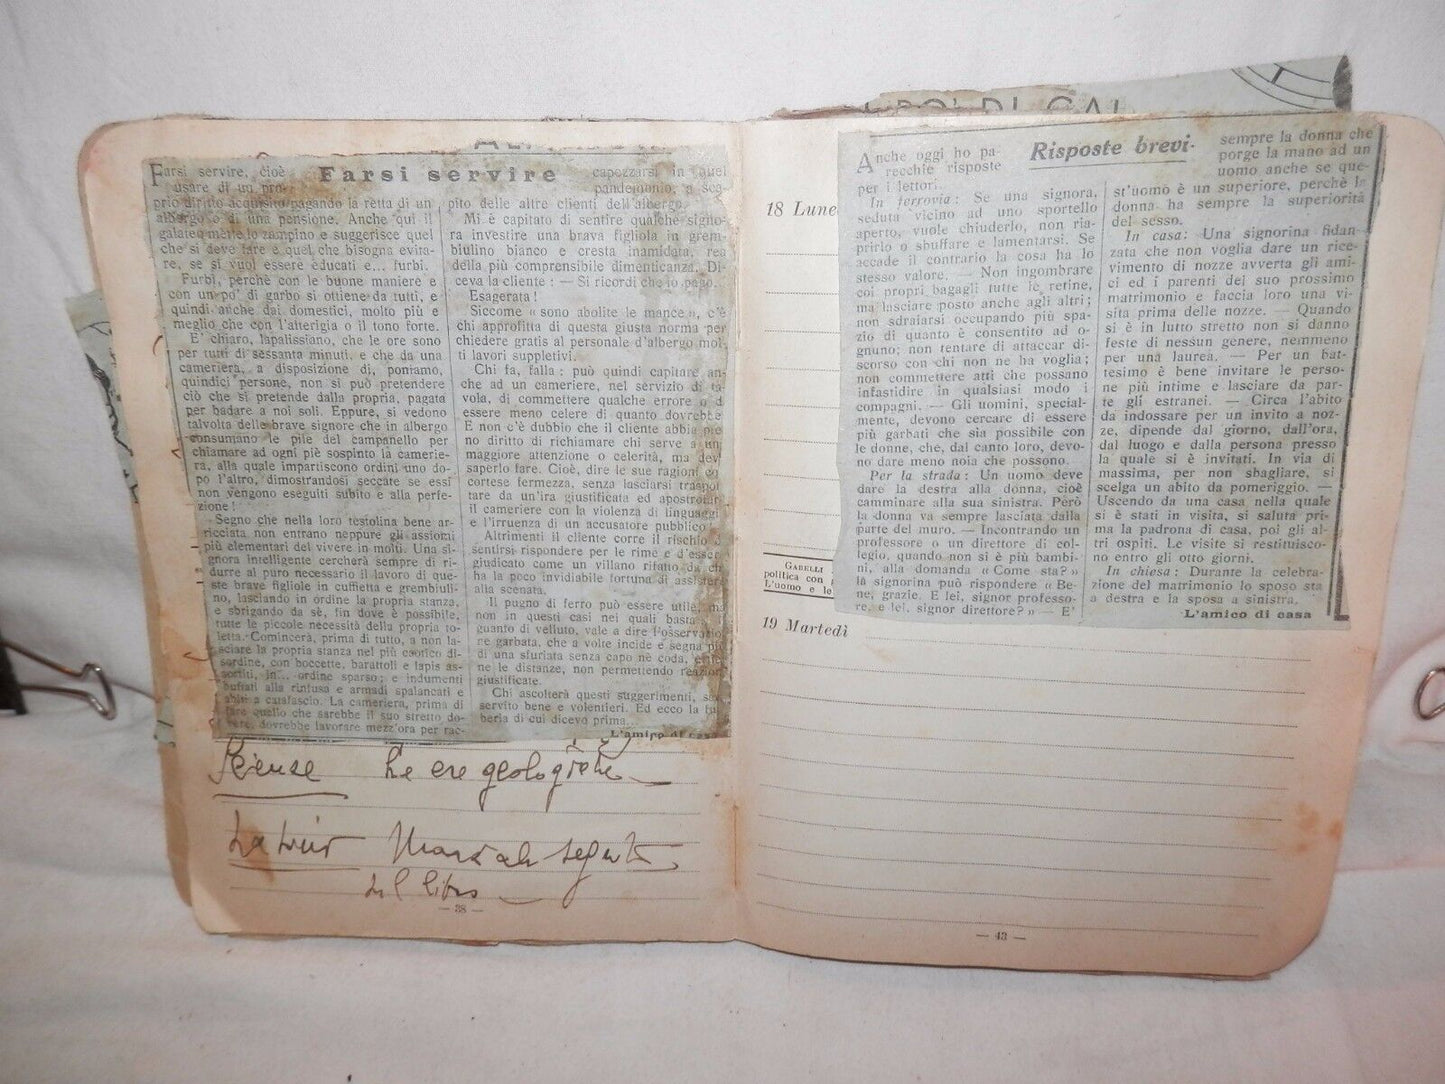 Farsi servire
Farsi servire, cioè
usare di un pro-
prio diritto acquisito pagando la retta di un
albergo o di una pensione. Anche qui il
galateo mette lo zampino e suggerisce quel
che si deve fare e quel che bisogna evita-
re, se si vuol essere educati e... furbi.
Furbi, perchè con le buone maniere e
con un po' di garbo si ottiene da tutti, e
quindi anche dai domestici, molto più e
meglio che con l'alterigia o il tono forte.
E' chiaro, lapalissiano, che le ore sono
per tutti di sessanta minuti, e che da una
cameriera, a disposizione di, poniamo,
quindici persone, non si può pretendere
ciò che si pretende dalla propria, pagata
per badare a noi soli. Eppure, si vedono
talvolta delle brave signore che in albergo
consumano le pile del campanello per
chiamare ad ogni piè sospinto la camerie-
ra, alla quale impartiscono ordini uno do-
po l'altro, dimostrandosi seccate se essi
non vengono eseguiti subito e alla perfe-
zione!
Segno che nella loro testolina bene ar-
ricciata non entrano neppure gli assiomi
più elementari del vivere in molti. Una si-
gnora intelligente cercherà sempre di ri-
durre al puro necessario il lavoro di que-
ste brave figliole in cuffietta e grembiuli-
no, lasciando in ordine la propria stanza,
e sbrigando da sè, fin dove è possibile,
tutte le piccole necessità della propria to-
letta. Comincerà, prima di tutto, a non la-
sciare la propria stanza nel più caotico di-
sordine, con boccette, barattoli e lapis as-
sortiti, in... ordine sparso; e indumenti
buttati alla rinfusa e armadi spalancati e
abiti a catafascio. La cameriera, prima di
fare quello che sarebbe il suo stretto do-
vere, dovrebbe lavorare mezz'ora per rac-
capezzarsi in quel
pandemonio; a sca-
pito delle altre clienti dell'albergo.
Mi è capitato di sentire qualche signo-
ra investire una brava figliola in grem-
biulino bianco e cresta inamidata, rea
della più comprensibile dimenticanza. Di-
ceva la cliente: — Si ricordi che io pago.
Esagerata!
Siccome « sono abolite le mance », c'è
chi approfitta di questa giusta norma per
chiedere gratis al personale d'albergo mol-
ti lavori suppletivi.
Chi fa, falla: può quindi capitare an-
che ad un cameriere, nel servizio di ta-
vola, di commettere qualche errore o d
essere meno celere di quanto dovrebbe
E non c'è dubbio che il cliente abbia pie
no diritto di richiamare chi serve a un
maggiore attenzione o celerità, ma dev
saperlo fare. Cioè, dire le sue ragioni co
cortese fermezza, senza lasciarsi traspor
tare da un'ira giustificata ed apostrofar
il cameriere con la violenza di linguaggi
e l'irruenza di un accusatore pubblico
Altrimenti il cliente corre il rischio d
sentirsi rispondere per le rime e d'esser
giudicato come un villano rifatto da ch
ha la poco invidiabile fortuna di assister
alla scenata.
Il pugno di ferro può essere utile, ma
non in questi casi nei quali basta
guanto di velluto, vale a dire l'osservazio
ne garbata, che a volte incide e segna più
di una sfuriata senza capo nè coda, e
ne le distanze, non permettendo reazion
giustificate.
Chi ascolterà questi suggerimenti, sa
servito bene e volentieri. Ed ecco la fu
beria di cui dicevo prima.
L'amico di casa
Scienze Le ere geologiche
Latino
del libro
— 38 —
PO' DI GAL
Risposte brevi
Anche oggi ho pa-
recchie risposte
per i lettori.
In ferrovia: Se una signora,
seduta vicino ad uno sportello
aperto, vuole chiuderlo, non ria-
prirlo o sbuffare e lamentarsi. Se
accade il contrario la cosa ha lo
stesso valore. — Non ingombrare
coi propri bagagli tutte le retine,
ma lasciare posto anche agli altri;
non sdraiarsi occupando più spa-
zio di quanto è consentito ad o-
gnuno; non tentare di attaccar di-
scorso con chi non ne ha voglia;
non commettere atti che possano
infastidire in qualsiasi modo i
compagni. — Gli uomini, special-
mente, devono cercare di essere
più garbati che sia possibile con
le donne, che, dal canto loro, devo-
no dare meno noia che possono.
Per la strada: Un uomo deve
dare la destra alla donna, cioè
camminare alla sua sinistra. Però
la donna va sempre lasciata dalla
parte del muro. — Incontrando un
professore o un direttore di col-
legio, quando non si è più bambi-
ni, alla domanda « Come sta? »
la signorina può rispondere « Be-
ne, grazie. E lei, signor professo-
re, e lei, signor direttore? » — E'
sempre la donna che
porge la mano ad un
uomo anche se que-
st'uomo è un superiore, perchè la
donna ha sempre la superiorità
del sesso.
In casa: Una signorina fidan-
zata che non voglia dare un rice-
vimento di nozze avverta gli ami-
ci ed i parenti del suo prossimo
matrimonio e faccia loro una vi-
sita prima delle nozze. — Quando
si è in lutto stretto non si danno
feste di nessun genere, nemmeno
per una laurea. — Per un bat-
tesimo è bene invitare le perso-
ne più intime e lasciare da par-
te gli estranei. — Circa l'abito
da indossare per un invito a noz-
ze, dipende dal giorno, dall'ora,
dal luogo e dalla persona presso
la quale si è invitati. In via di
massima, per non sbagliare, si
scelga un abito da pomeriggio. —
Uscendo da una casa nella quale
si è stati in visita, si saluta pri-
ma la padrona di casa, poi gli al-
tri ospiti. Le visite si restituisco-
no entro gli otto giorni.
In chiesa: Durante la celebra-
zione del matrimonio lo sposo sta
a destra e la sposa a sinistra.
L'amico di casa
18 Lune
GABELLI
politica con
L'uomo e le
19 Martedì
— 43 —